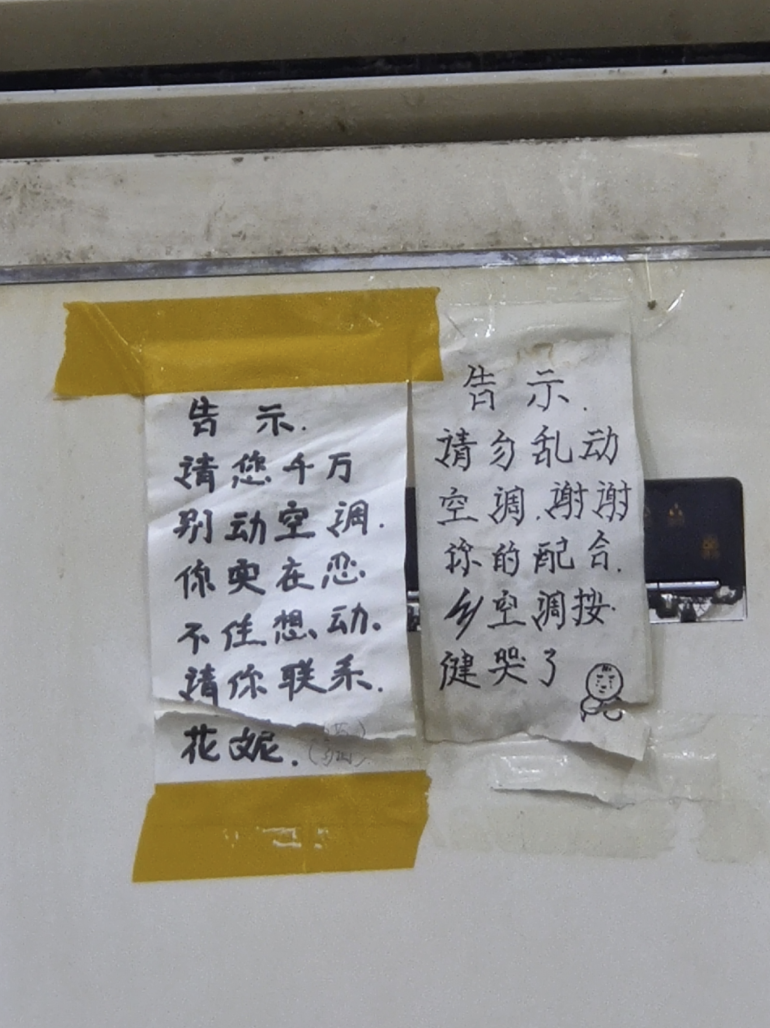 告示.
请您千万
别动空调.
你实在忍
不住想动.
请你联系.
花妮.
告示.
请勿乱动
空调.谢谢
你的配合.
空调按
键哭了